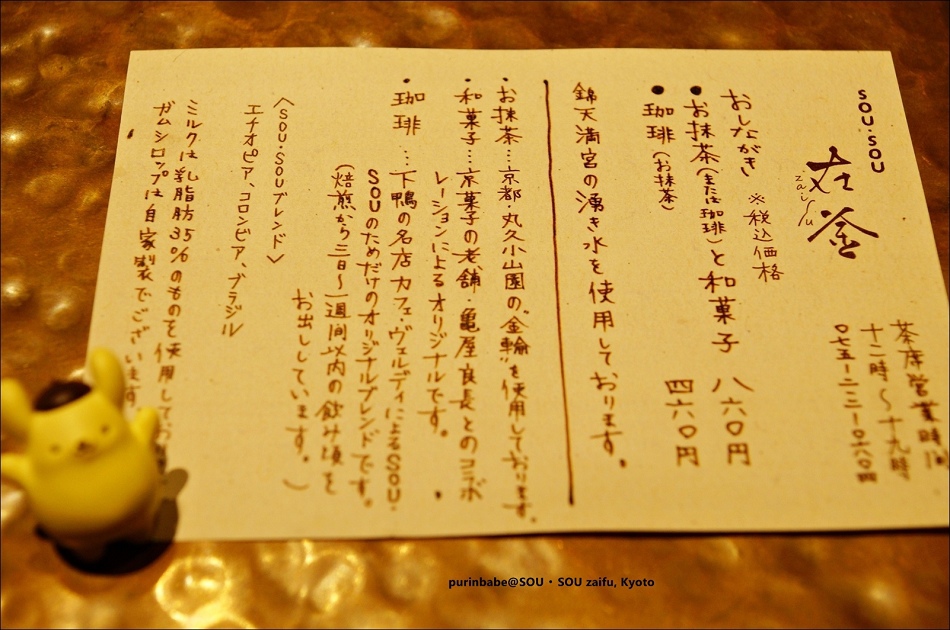 SOU・SOU
在釜
zaifu
茶席営業時間
十二時〜十九時
〇七五-二一二-〇六〇四
おしながき
※税込価格
●お抹茶(または珈琲)と和菓子 八六〇円
●珈琲(お抹茶) 四六〇円
錦天満宮の湧き水を使用しております。
・お抹茶…京都 丸久小山園の"金輪"を使用しております。
・和菓子…京菓子の老舗・亀屋良長とのコラボ
レーションによるオリジナルです。
・珈琲…下鴨の名店 カフェ・ヴェルディによるSOU・
SOUのためだけのオリジナルブレンドです。
(焙煎から三日〜一週間以内の飲み頃を
お出ししています。)
〈SOU・SOUブレンド〉
エチオピア、コロンビア、ブラジル
ミルクは乳脂肪35%のものを使用してお
ガムシロップは自家製でございます。
purinbabe@SOU・SOU zaifu, Kyoto